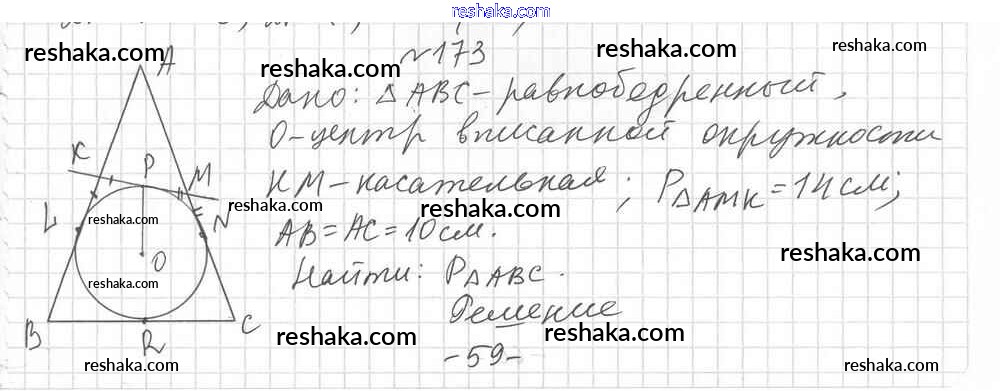 reshaka.com
№173
Дано: △ABC - равнобедренный,
O - центр вписанной окружности
KM - касательная; P△AMK = 14 см;
AB = AC = 10 см.
Найти: P△ABC.
Решение
-59-
A
K P M
L N
O
B R C
reshaka.com
reshaka.com
reshaka.com
reshaka.com
reshaka.com
reshaka.com
reshaka.com
reshaka.com
reshaka.com
reshaka.com
reshaka.com
reshaka.com
reshaka.com
reshaka.com